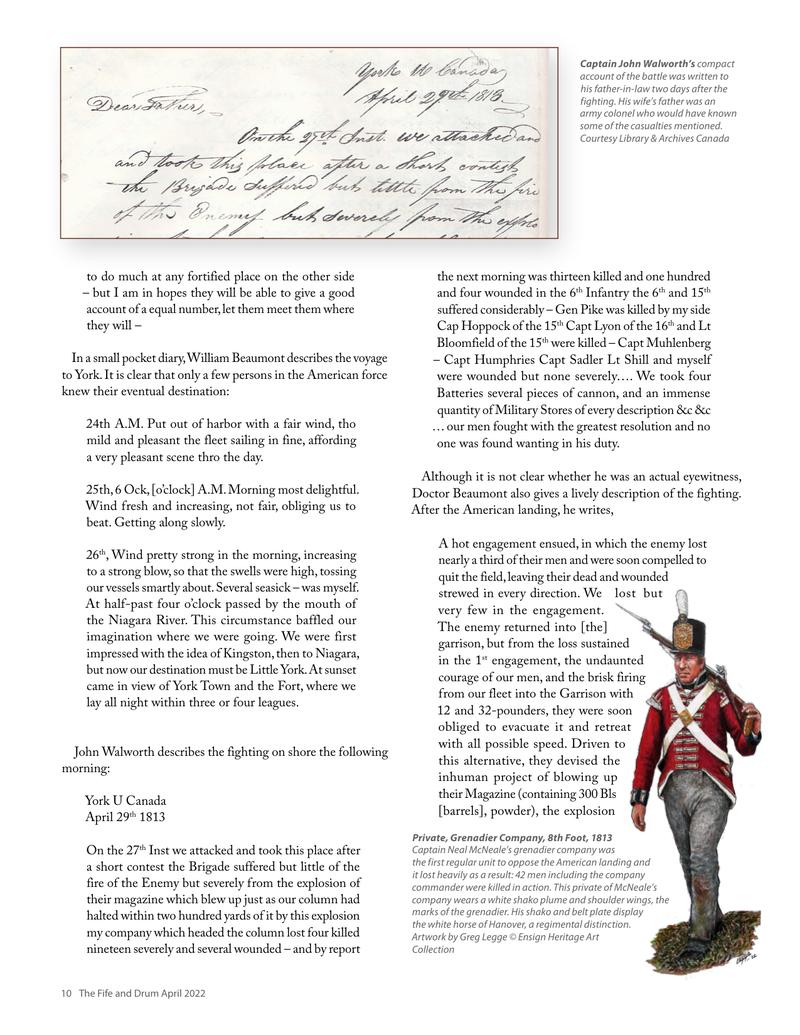 York U Canada
April 29th 1813
Dear Father,
On the 27th Inst. we attacked and
and took this place after a short contest
the Brigade suffered but little from the fire
of the Enemy but severely from the explo
Captain John Walworth's compact
account of the battle was written to
his father-in-law two days after the
fighting. His wife's father was an
army colonel who would have known
some of the casualties mentioned.
Courtesy Library & Archives Canada
to do much at any fortified place on the other side
– but I am in hopes they will be able to give a good
account of a equal number, let them meet them where
they will –
In a small pocket diary, William Beaumont describes the voyage
to York. It is clear that only a few persons in the American force
knew their eventual destination:
24th A.M. Put out of harbor with a fair wind, tho
mild and pleasant the fleet sailing in fine, affording
a very pleasant scene thro the day.
25th, 6 Ock, [o'clock] A.M. Morning most delightful.
Wind fresh and increasing, not fair, obliging us to
beat. Getting along slowly.
26th, Wind pretty strong in the morning, increasing
to a strong blow, so that the swells were high, tossing
our vessels smartly about. Several seasick – was myself.
At half-past four o'clock passed by the mouth of
the Niagara River. This circumstance baffled our
imagination where we were going. We were first
impressed with the idea of Kingston, then to Niagara,
but now our destination must be Little York. At sunset
came in view of York Town and the Fort, where we
lay all night within three or four leagues.
John Walworth describes the fighting on shore the following
morning:
York U Canada
April 29th 1813
On the 27th Inst we attacked and took this place after
a short contest the Brigade suffered but little of the
fire of the Enemy but severely from the explosion of
their magazine which blew up just as our column had
halted within two hundred yards of it by this explosion
my company which headed the column lost four killed
nineteen severely and several wounded – and by report
the next morning was thirteen killed and one hundred
and four wounded in the 6th Infantry the 6th and 15th
suffered considerably – Gen Pike was killed by my side
Cap Hoppock of the 15th Capt Lyon of the 16th and Lt
Bloomfield of the 15th were killed – Capt Muhlenberg
– Capt Humphries Capt Sadler Lt Shill and myself
were wounded but none severely…. We took four
Batteries several pieces of cannon, and an immense
quantity of Military Stores of every description &c &c
… our men fought with the greatest resolution and no
one was found wanting in his duty.
Although it is not clear whether he was an actual eyewitness,
Doctor Beaumont also gives a lively description of the fighting.
After the American landing, he writes,
A hot engagement ensued, in which the enemy lost
nearly a third of their men and were soon compelled to
quit the field, leaving their dead and wounded
strewed in every direction. We lost but
very few in the engagement.
The enemy returned into [the]
garrison, but from the loss sustained
in the 1st engagement, the undaunted
courage of our men, and the brisk firing
from our fleet into the Garrison with
12 and 32-pounders, they were soon
obliged to evacuate it and retreat
with all possible speed. Driven to
this alternative, they devised the
inhuman project of blowing up
their Magazine (containing 300 Bls
[barrels], powder), the explosion
Private, Grenadier Company, 8th Foot, 1813
Captain Neal McNeale's grenadier company was
the first regular unit to oppose the American landing and
it lost heavily as a result: 42 men including the company
commander were killed in action. This private of McNeale's
company wears a white shako plume and shoulder wings, the
marks of the grenadier. His shako and belt plate display
the white horse of Hanover, a regimental distinction.
Artwork by Greg Legge © Ensign Heritage Art
Collection
10 The Fife and Drum April 2022